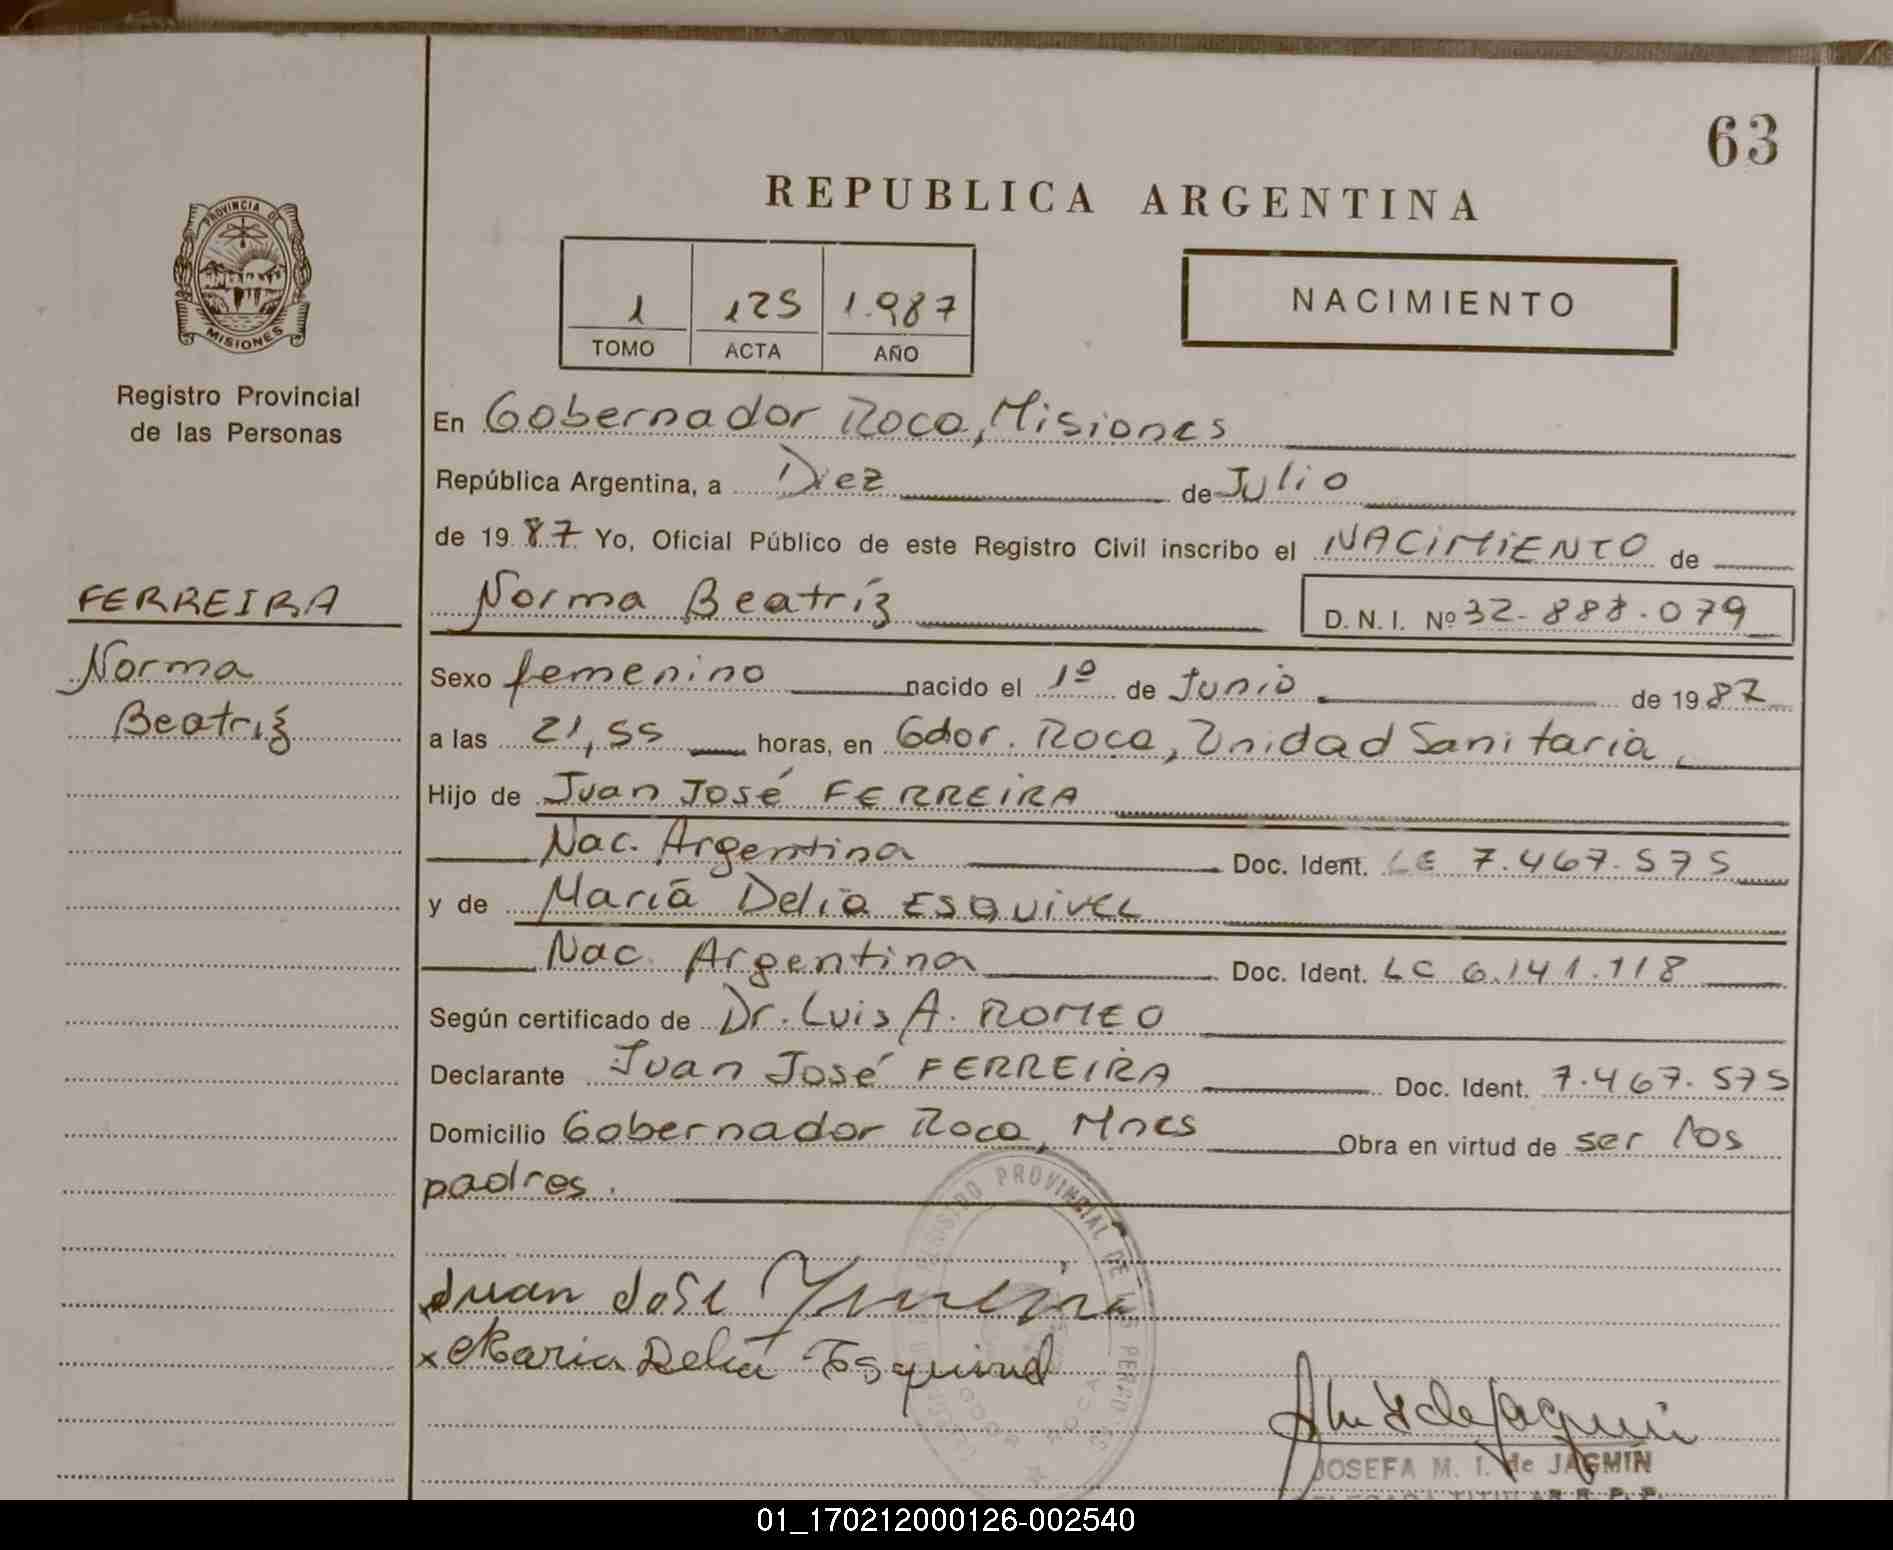 63
REPUBLICA ARGENTINA
PROVINCIA DE
MISIONES
Registro Provincial
de las Personas
1 125 1.987
TOMO ACTA AÑO
NACIMIENTO
En Gobernador Roca, Misiones
República Argentina, a Diez de Julio
de 1987 Yo, Oficial Público de este Registro Civil inscribo el NACIMIENTO de
FERREIRA
Norma
Beatriz
Norma Beatríz D. N. I. Nº 32-888.079
Sexo femenino nacido el 1º de Junio de 1987
a las 21,55 horas, en Gdor. Roca, Unidad Sanitaria
Hijo de Juan José FERREIRA
Nac. Argentina Doc. Ident. LE 7.467.575
y de María Delia ESQUIVEL
Nac. Argentina Doc. Ident. LC 6.141.118
Según certificado de Dr. Luis A. ROMEO
Declarante Juan José FERREIRA Doc. Ident. 7.467.575
Domicilio Gobernador Roca, Mnes Obra en virtud de ser los
padres.
REGISTRO PROVINCIAL DE LAS PERSO
ROCA
Juan José Ferreira
x Maria Delia Esquivel
JOSEFA M. I. de JAGMIN
01_170212000126-002540